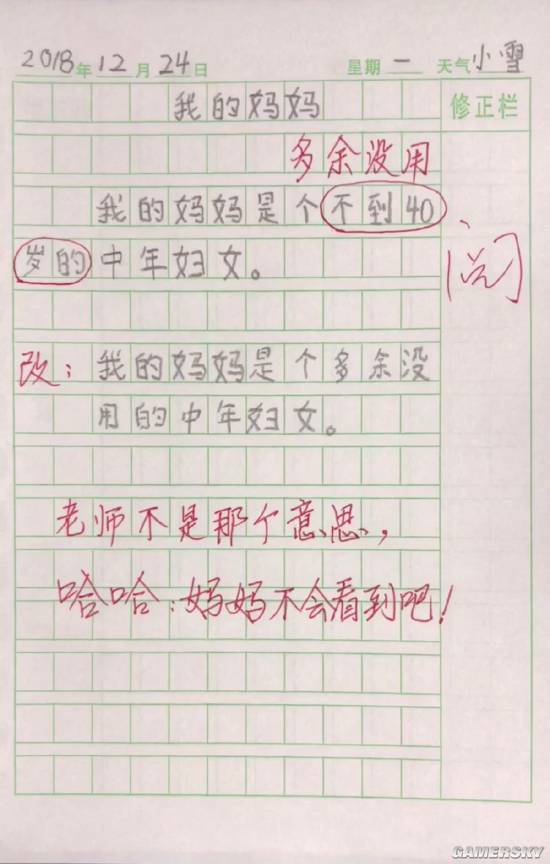 2018年12月24日 星期一 天气小雪
我的妈妈 修正栏
多余没用
我的妈妈是个不到40
岁的中年妇女。
阅
改：我的妈妈是个多余没
用的中年妇女。
老师不是那个意思，
哈哈：妈妈不会看到吧！
GAMERSKY